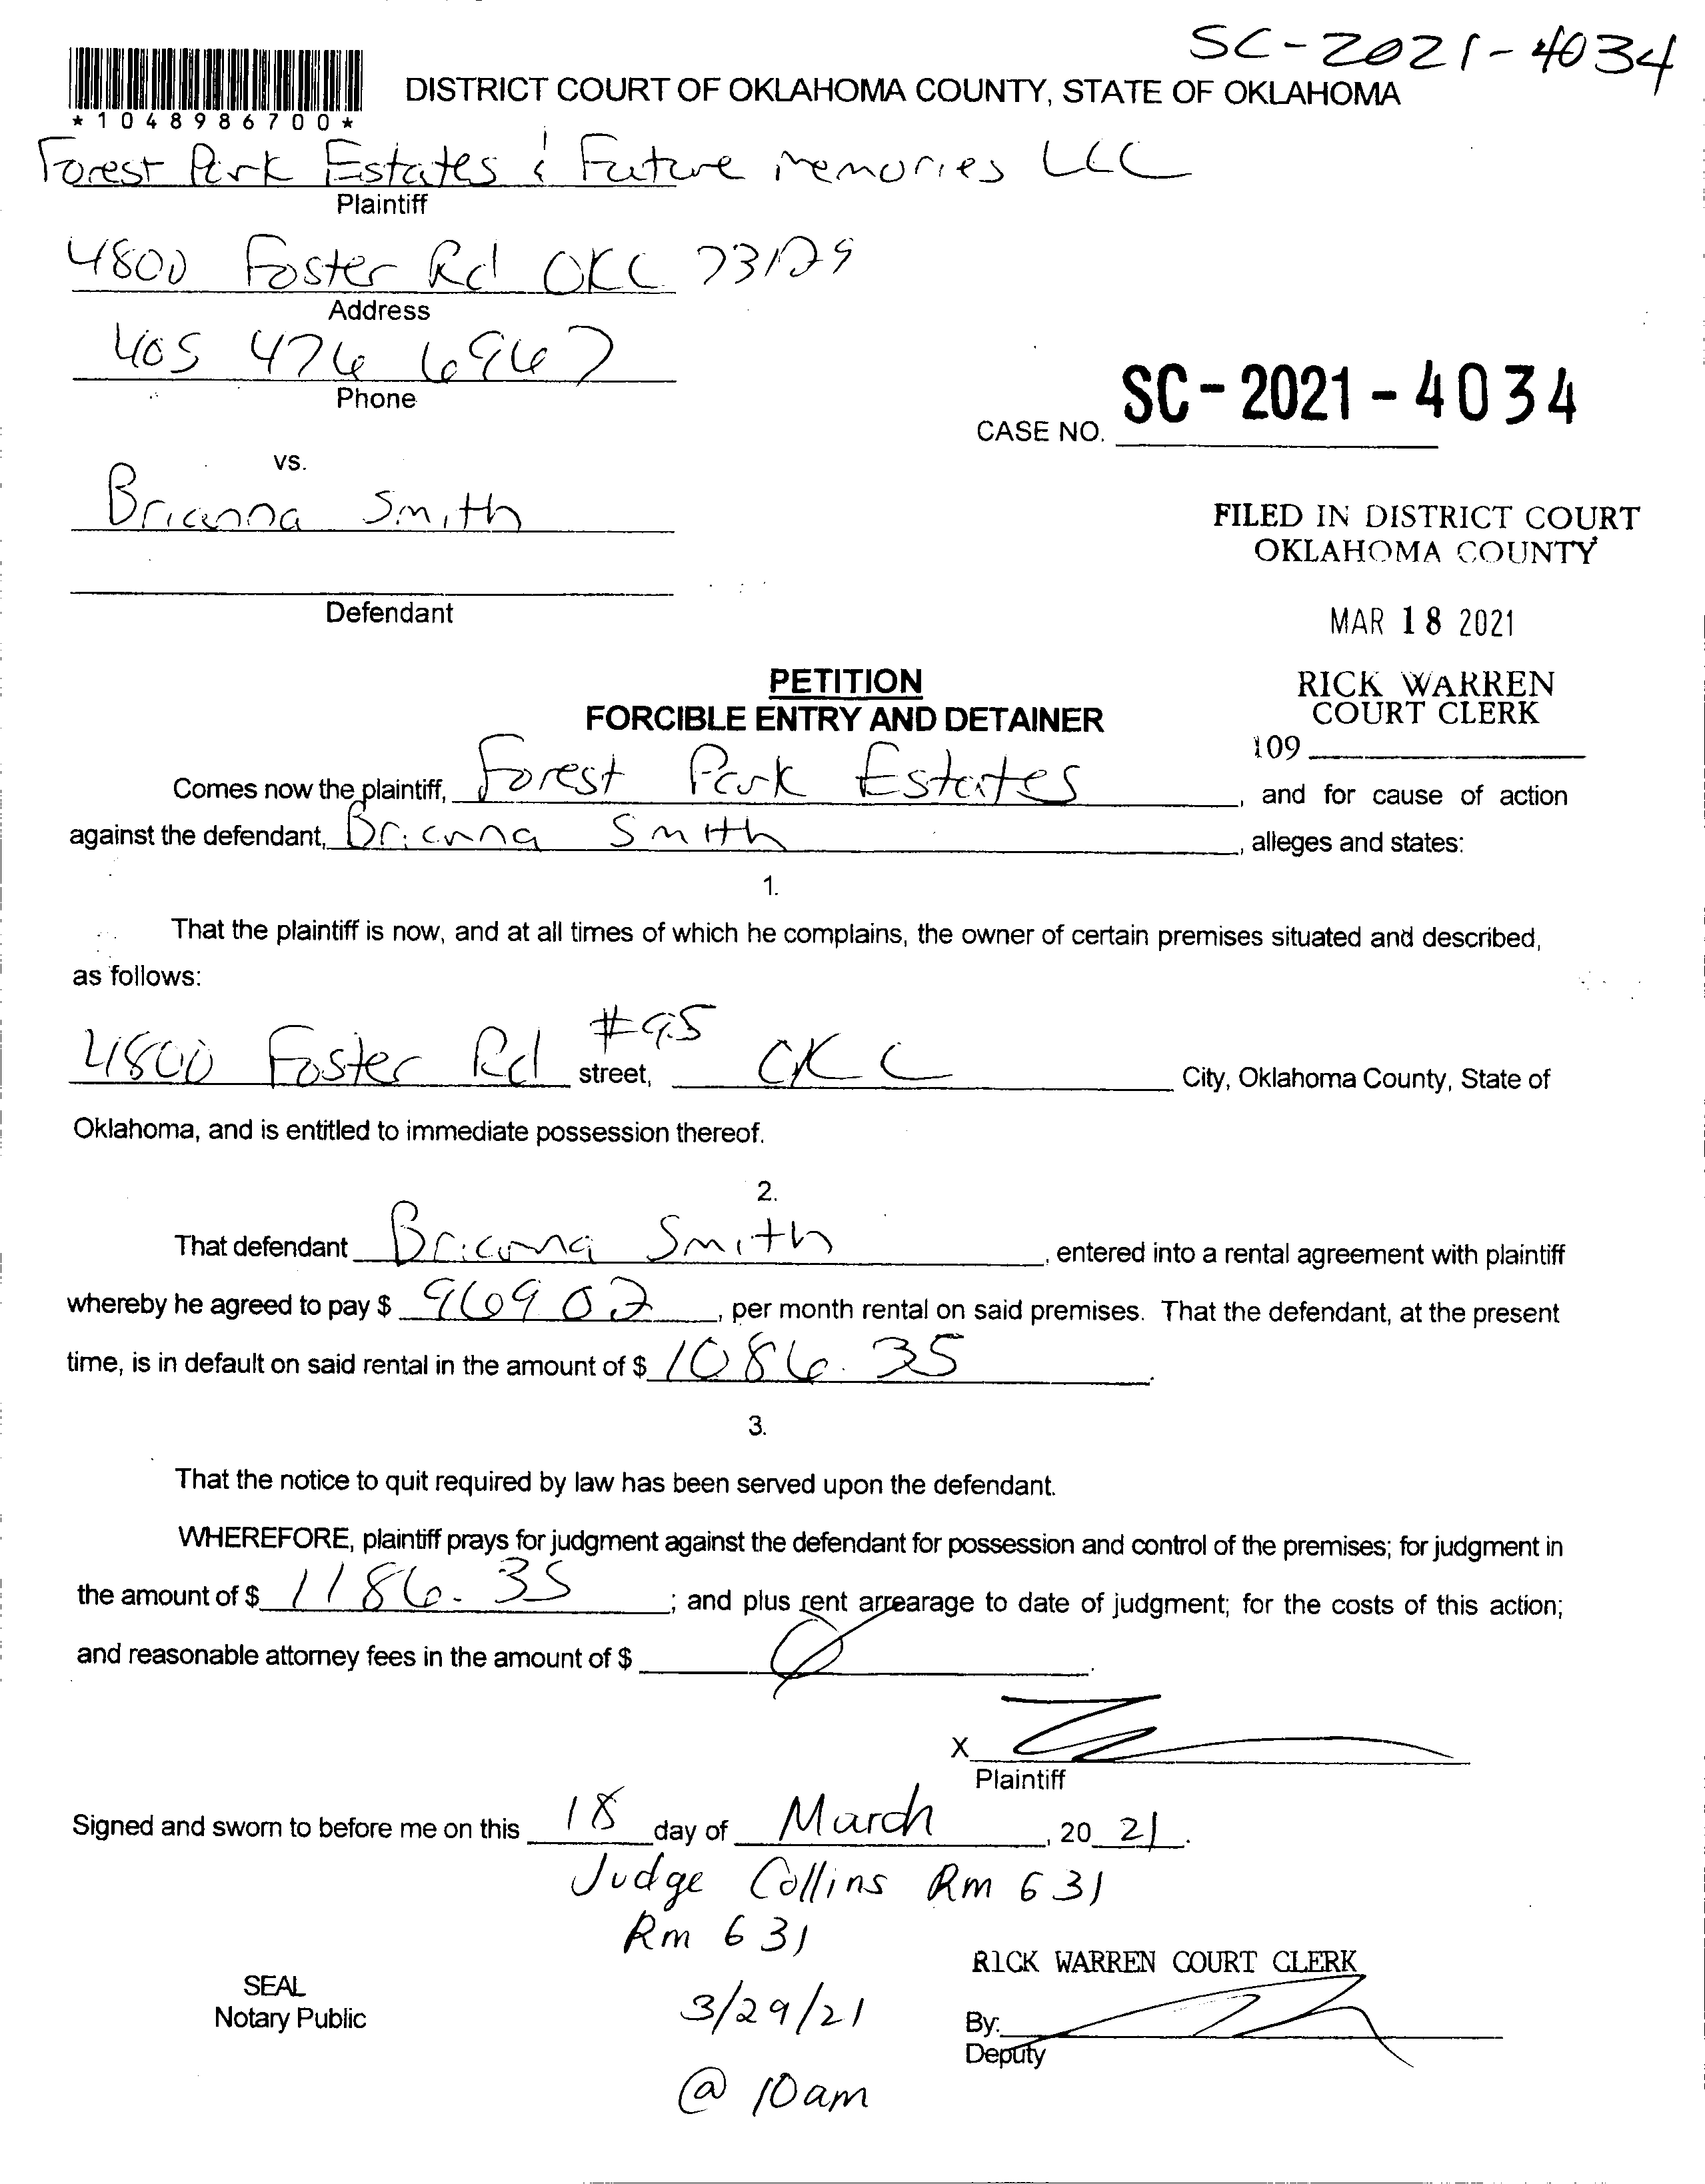 SC-2021-4034
*1048986700*
DISTRICT COURT OF OKLAHOMA COUNTY, STATE OF OKLAHOMA
Forest Park Estates & Future Memories LLC
Plaintiff
4800 Foster Rd OKC 73129
Address
405 476 6967
Phone
CASE NO. SC-2021-4034
vs.
Brianna Smith
FILED IN DISTRICT COURT
OKLAHOMA COUNTY
Defendant
MAR 18 2021
PETITION
RICK WARREN
FORCIBLE ENTRY AND DETAINER
COURT CLERK
109
Comes now the plaintiff, Forest Park Estates, and for cause of action
against the defendant, Brianna Smith, alleges and states:
1.
That the plaintiff is now, and at all times of which he complains, the owner of certain premises situated and described,
as follows:
4800 Foster Rd #95 street, OKC City, Oklahoma County, State of
Oklahoma, and is entitled to immediate possession thereof.
2.
That defendant Brianna Smith, entered into a rental agreement with plaintiff
whereby he agreed to pay $ 969 02, per month rental on said premises. That the defendant, at the present
time, is in default on said rental in the amount of $ 1086.35.
3.
That the notice to quit required by law has been served upon the defendant.
WHEREFORE, plaintiff prays for judgment against the defendant for possession and control of the premises; for judgment in
the amount of $ 1186.35; and plus rent arrearage to date of judgment; for the costs of this action;
and reasonable attorney fees in the amount of $
X
Plaintiff
Signed and sworn to before me on this 18 day of March, 20 21.
Judge Collins Rm 631
Rm 631
RICK WARREN COURT CLERK
SEAL
Notary Public
3/29/21
By:
Deputy
@ 10am